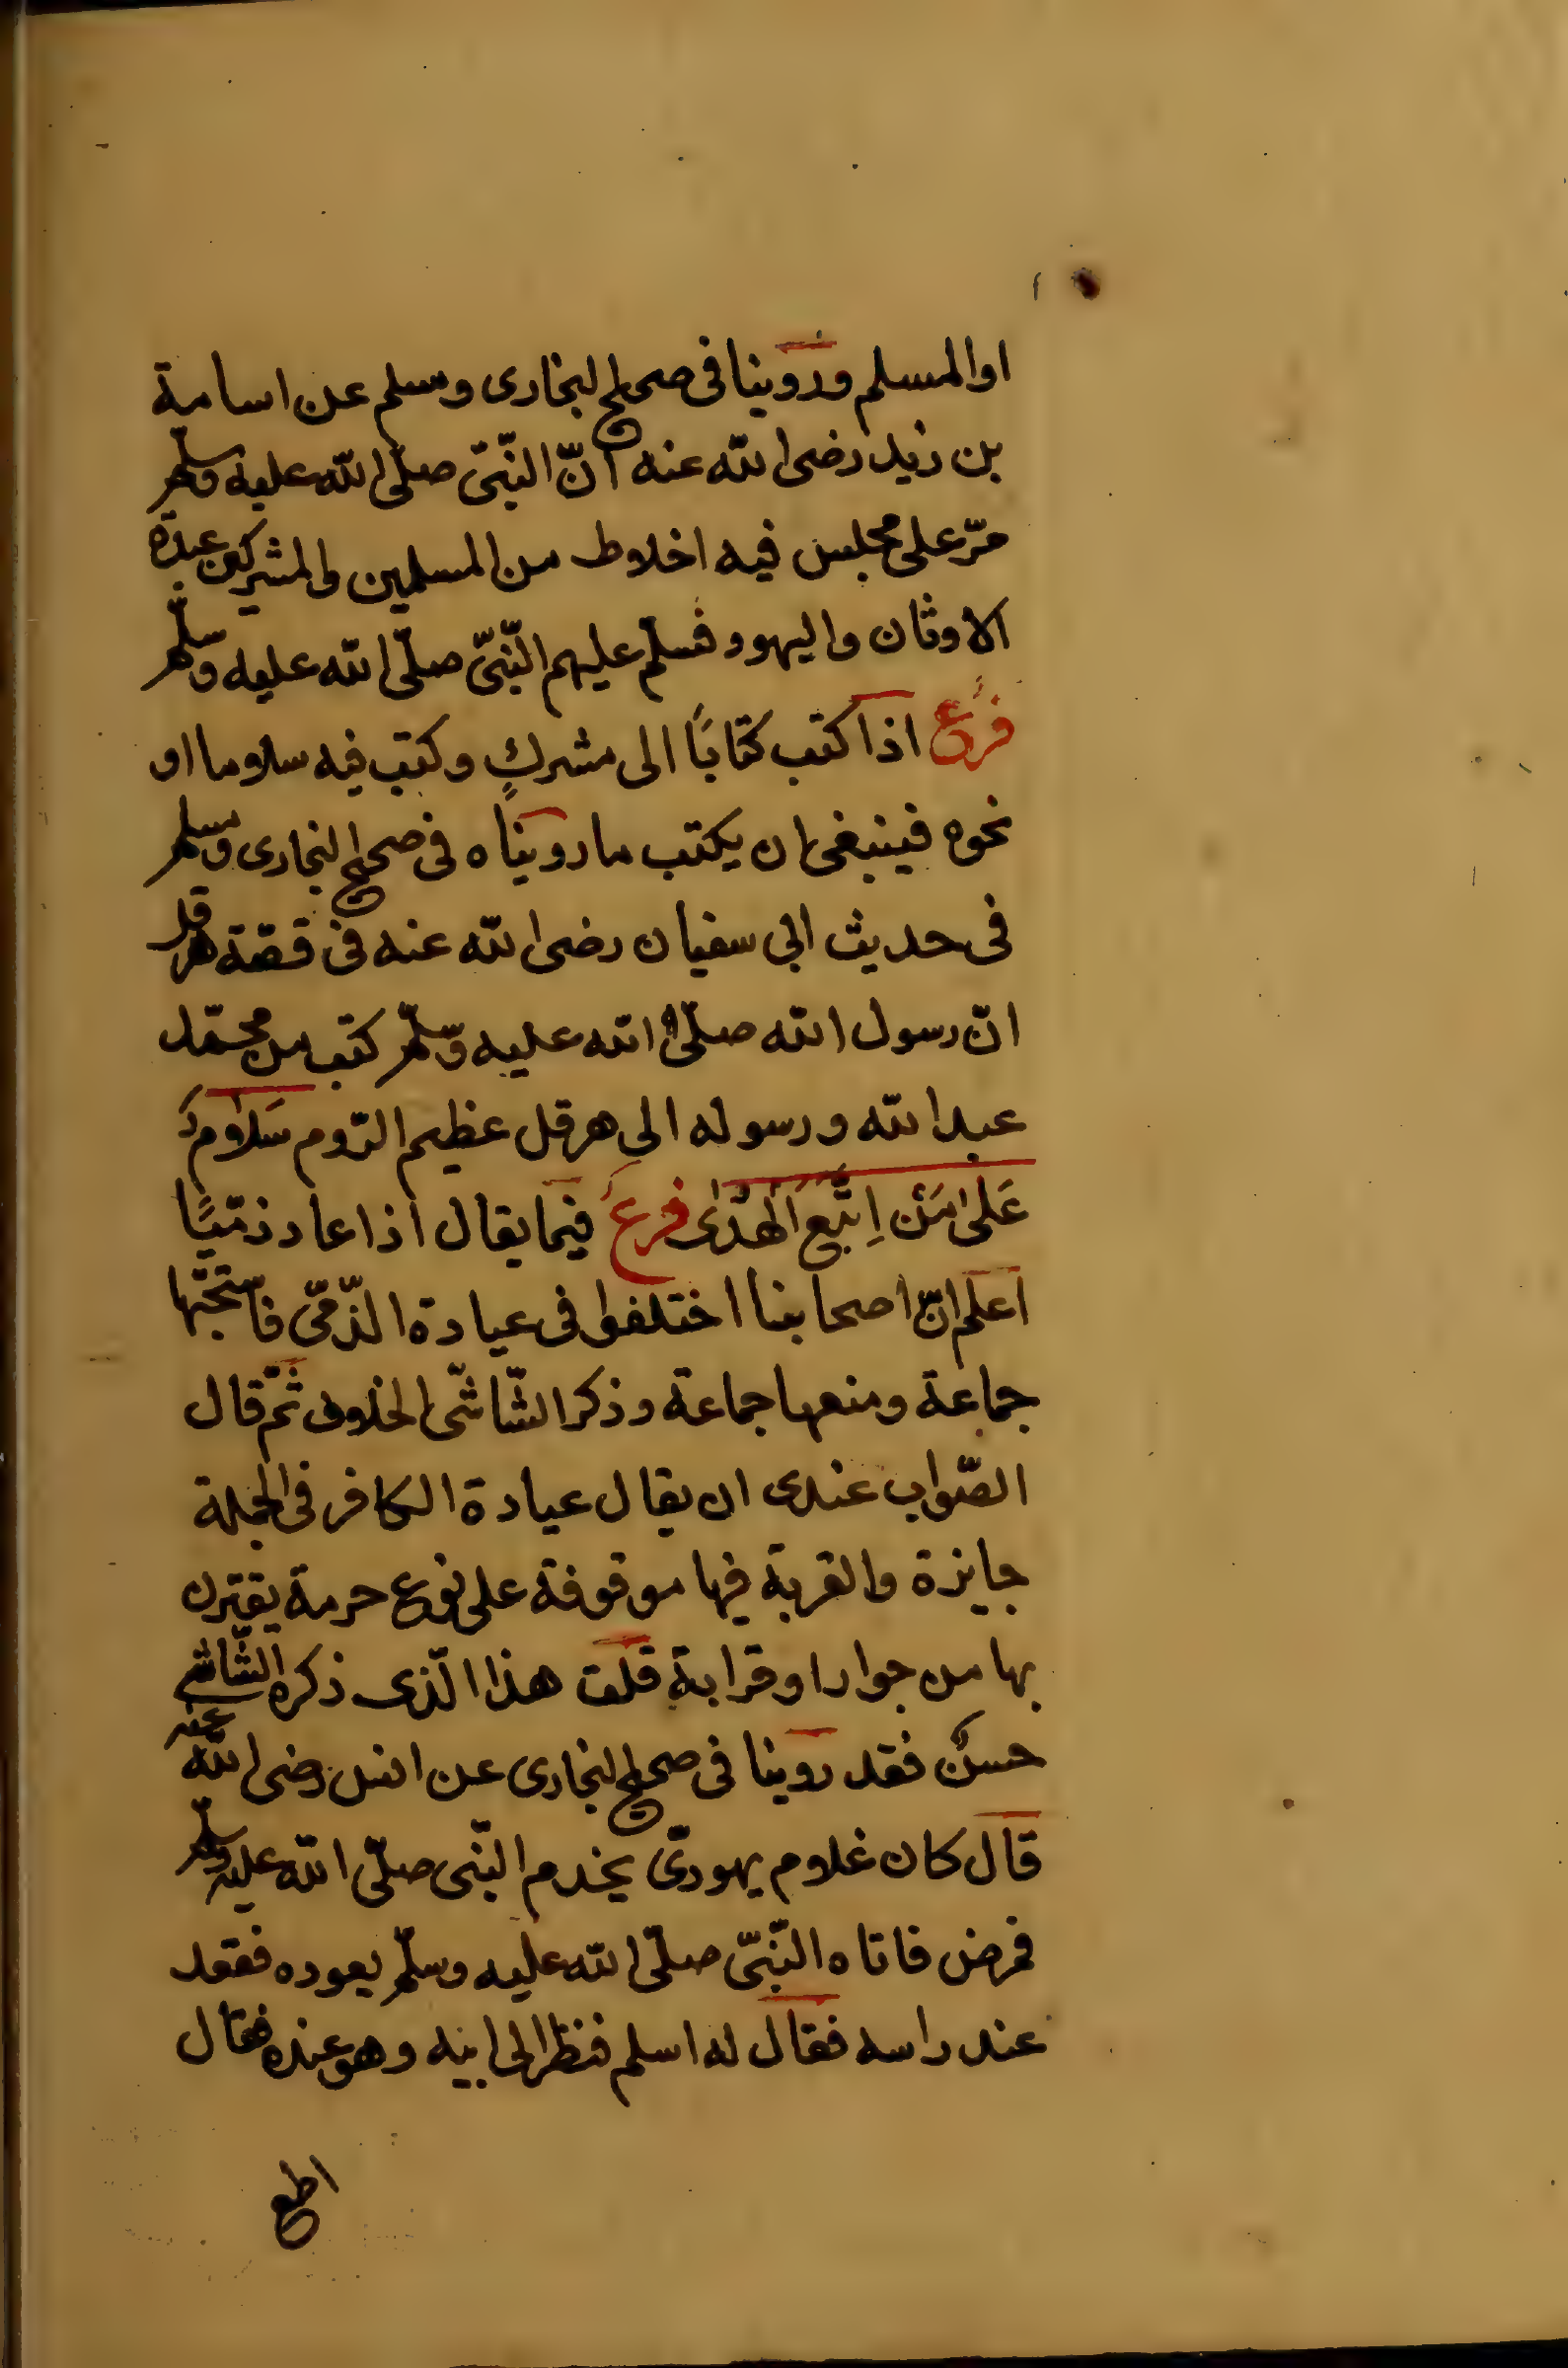 او المسلم وروينا فى صحيح البخارى وسلم عن اسامة
بن زيد رضى الله عنه انّ النّبىّ صلّى الله عليه وسلّم
مرّ على مجلس فيه اخلاط من المسلمين والمشركين عبدة
الاوثان واليهود فسلّم عليهم النّبىّ صلّى الله عليه وسلّم
فرع اذا كتب كتابًا الى مشركٍ وكتب فيه سلاما او
نحوه فينبغى ان يكتب ما رويناه فى صحيح البخارى ومسلم
فى حديث ابى سفيان رضى الله عنه فى قصّة هرقل
انّ رسول الله صلّى الله عليه وسلّم كتب من محمّد
عبد الله ورسوله الى هرقل عظيم الرّوم سَلَامٌ
عَلىٰ مَنْ اِتَّبَعَ الهُدٰى فرع فيما يقال اذا عاد ذمّيًا
اعلم انّ اصحابنا اختلفوا فى عيادة الذّمّى فاستحبّها
جماعة ومنعها جماعة وذكر الشّاشّى الخلاف ثمّ قال
الصّواب عندى ان يقال عيادة الكافر فى الجملة
جايزة والقربة فيها موقوفة على نوع حرمة يقترن
بها من جوار او قرابة قلت هذا الّذى ذكره الشّاشى
حسنٌ فقد روينا فى صحيح البخارى عن انس رضى الله عنه
قال كان غلام يهودىّ يخدم النّبى صلّى الله عليه وسلّم
فمرض فاتاه النّبىّ صلّى الله عليه وسلّم يعوده فقعد
عند راسه فقال له اسلم فنظر الى ابيه وهو عنده فقال
اطع